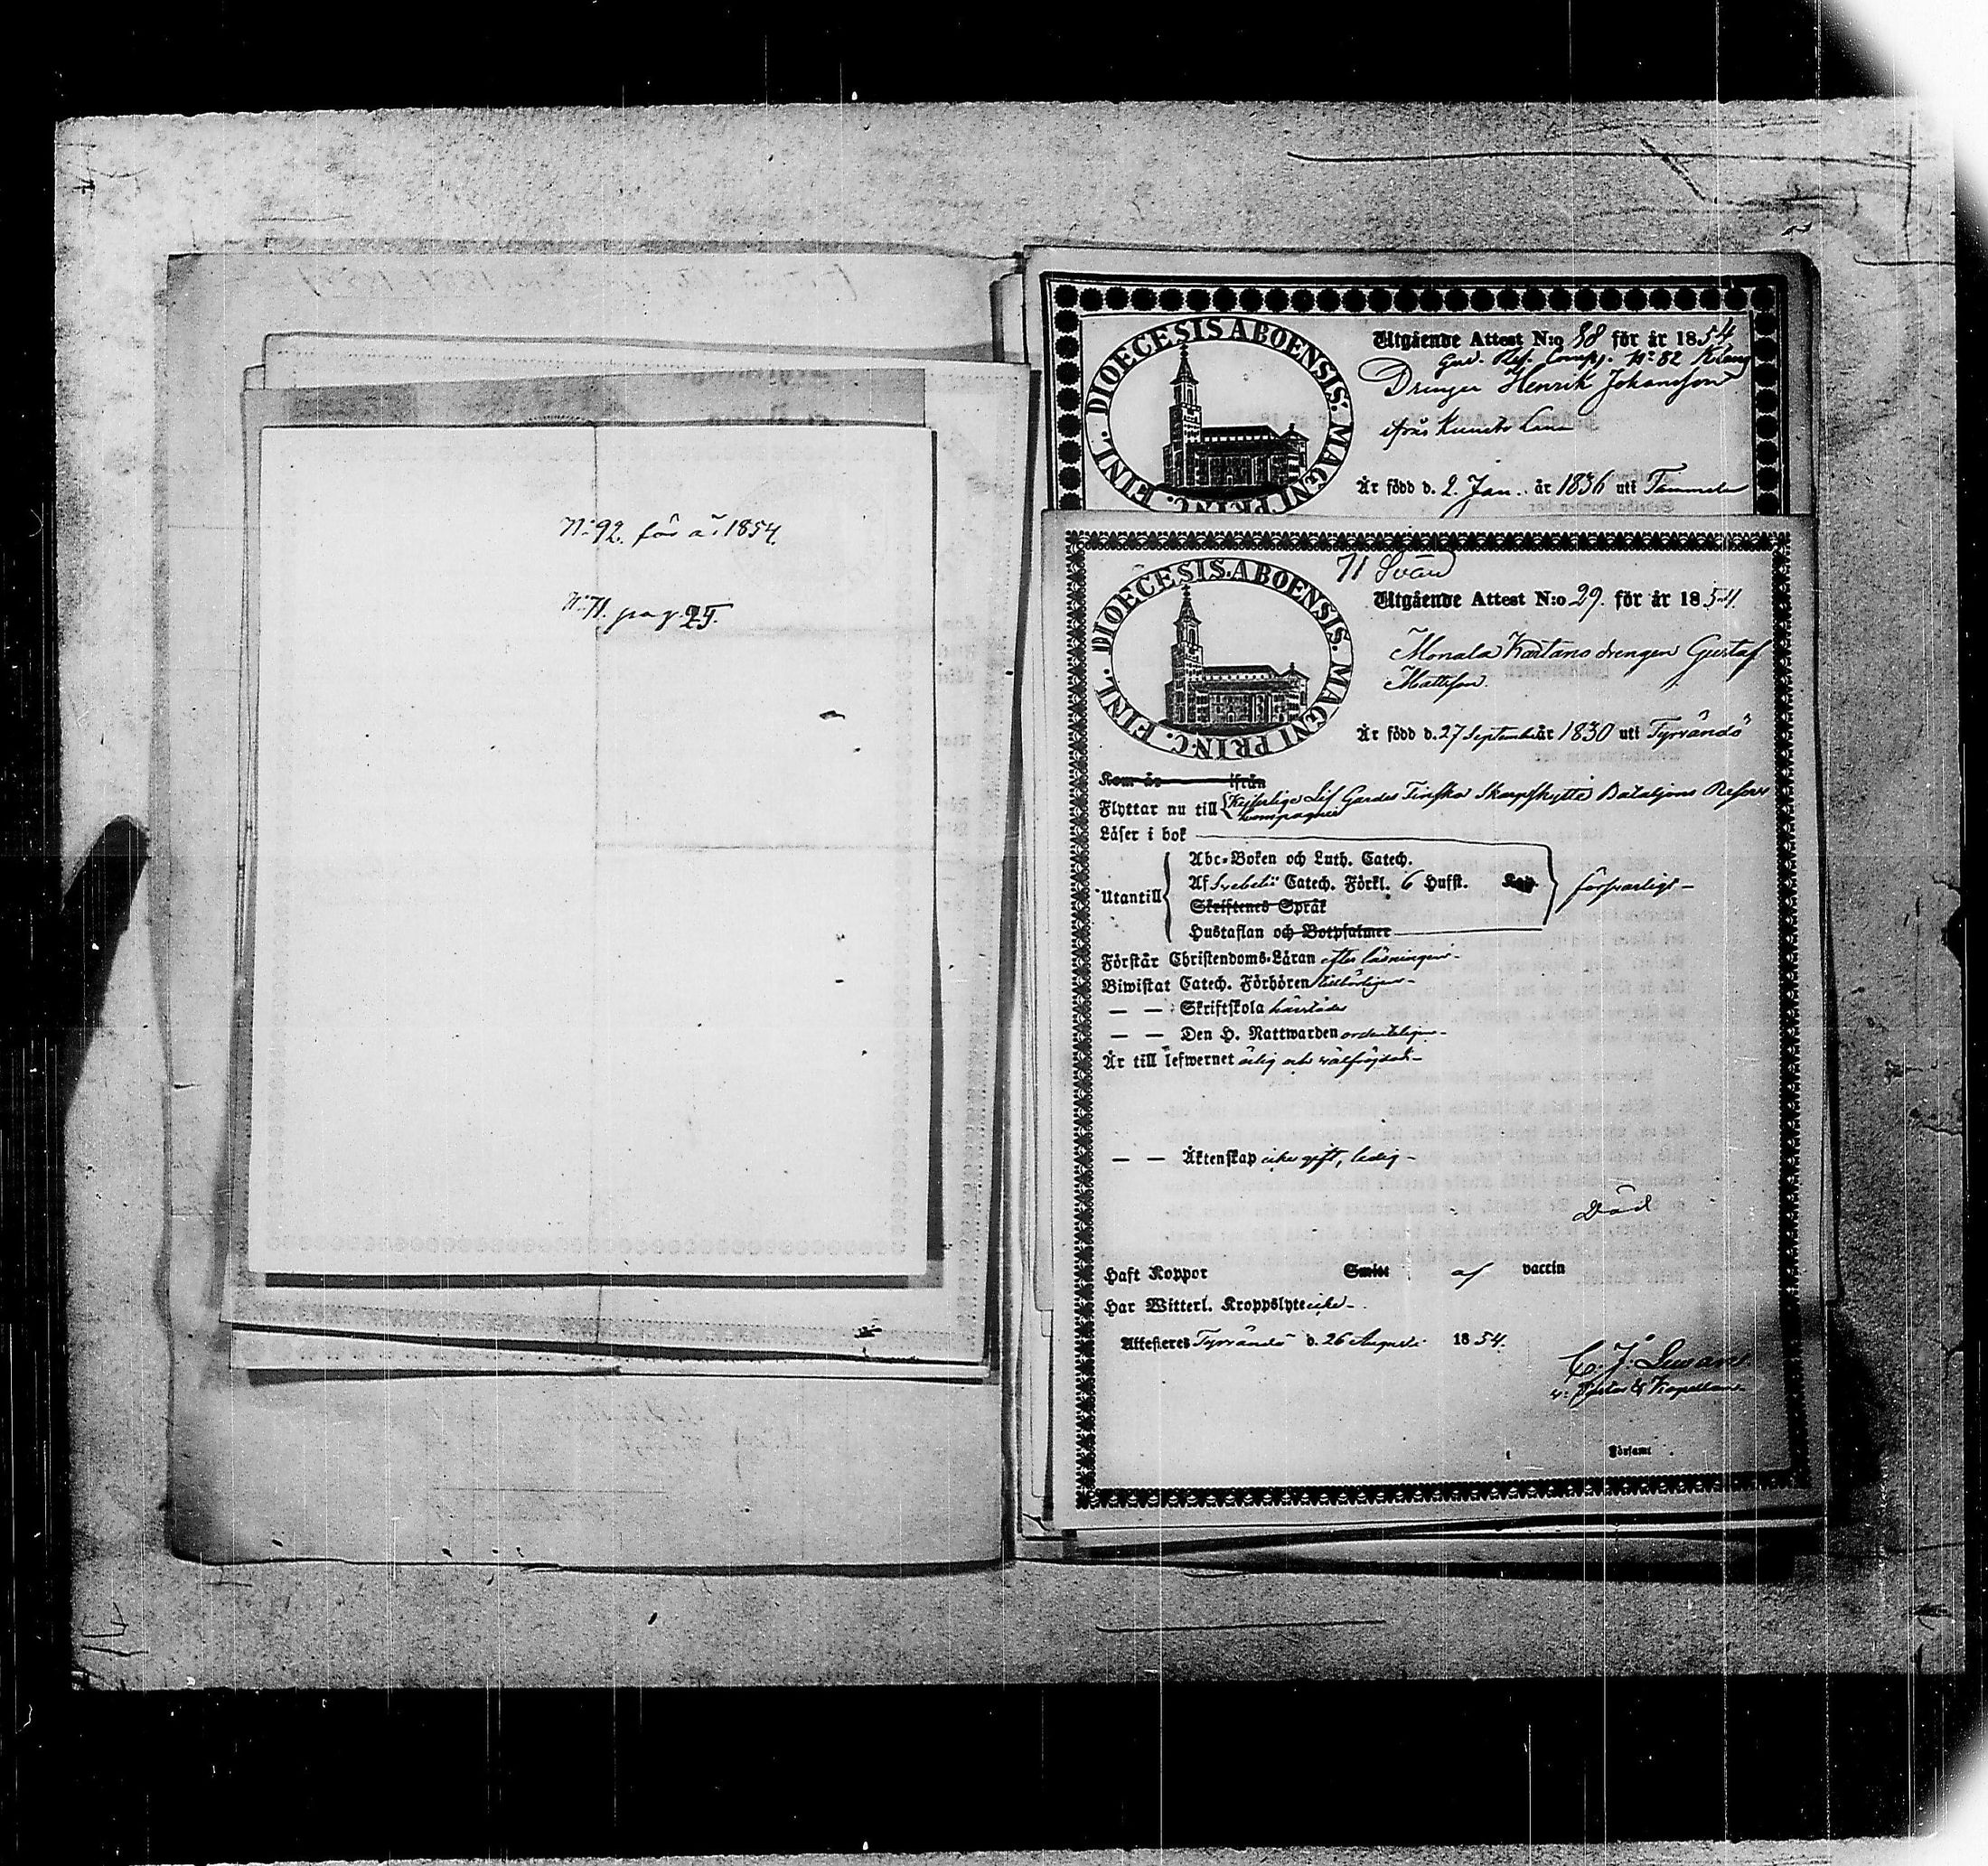 N:o 92. för år 1854.
N:o 71. pag. 25.
DIOECESIS ABOENSIS. MAGNI PRINC. FINL.
Utgående Attest N:o 38 för år 1854
Gard. Res. Comp. N:o 82 Klang
Drengen Henrik Johansson
ifrån
Är född d. 2. Jan. år 1836 uti Tammela
71 Svärd
DIOECESIS ABOENSIS. MAGNI PRINC. FINL.
Utgående Attest N:o 29. för år 1854.
Monala Kartano drengen Gustaf
Mattsson.
Är född d. 27 September år 1830 uti Tyrvändö
Kom år ifrån
Flyttar nu till Kejserliga Lif Gardes Finska Skarpskytte Bataljons Reserv
Compagnie
Läser i bok
Abc-Boken och Luth. Catech.
Af Svebelii Catech. Förkl. 6 Hufst. Kap.
Utantill försvarligt
Skriftenes Språk
Hustaflan och Botpsalmer
Förstår Christendoms-Läran efter läsningen
Biwistat Catech. Förhören
— — Skriftskola härstädes
— — Den H. Nattwarden ordenteligen
Är till lefwernet ärlig och välfrejdad
— — Äktenskap icke gift, ledig
Död
Haft Koppor Smitt af vaccin
Har Witterl. Kroppslyte icke
Attesteras Tyrvändö d. 26 Augusti 1854.
C. J.
v: Pastor & Kapellan
Församl